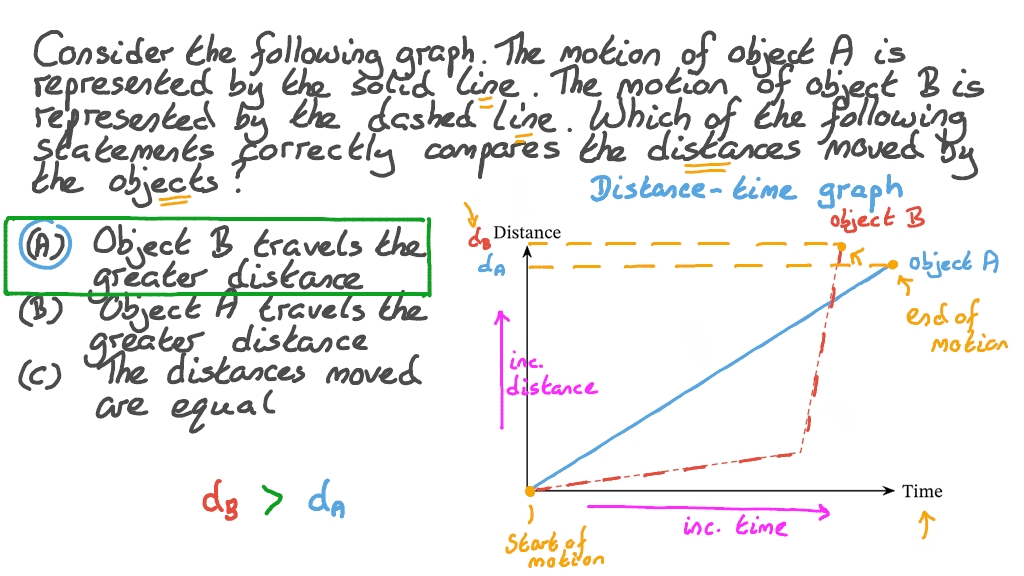 Consider the following graph. The motion of object A is
represented by the solid line. The motion of object B is
represented by the dashed line. Which of the following
statements correctly compares the distances moved by
the objects?
Distance-time graph
(A) Object B travels the
greater distance
(B) Object A travels the
greater distance
(C) The distances moved
are equal
dB > dA
object B
dB Distance
dA
object A
end of
motion
inc.
distance
Time
inc. time
Start of
motion